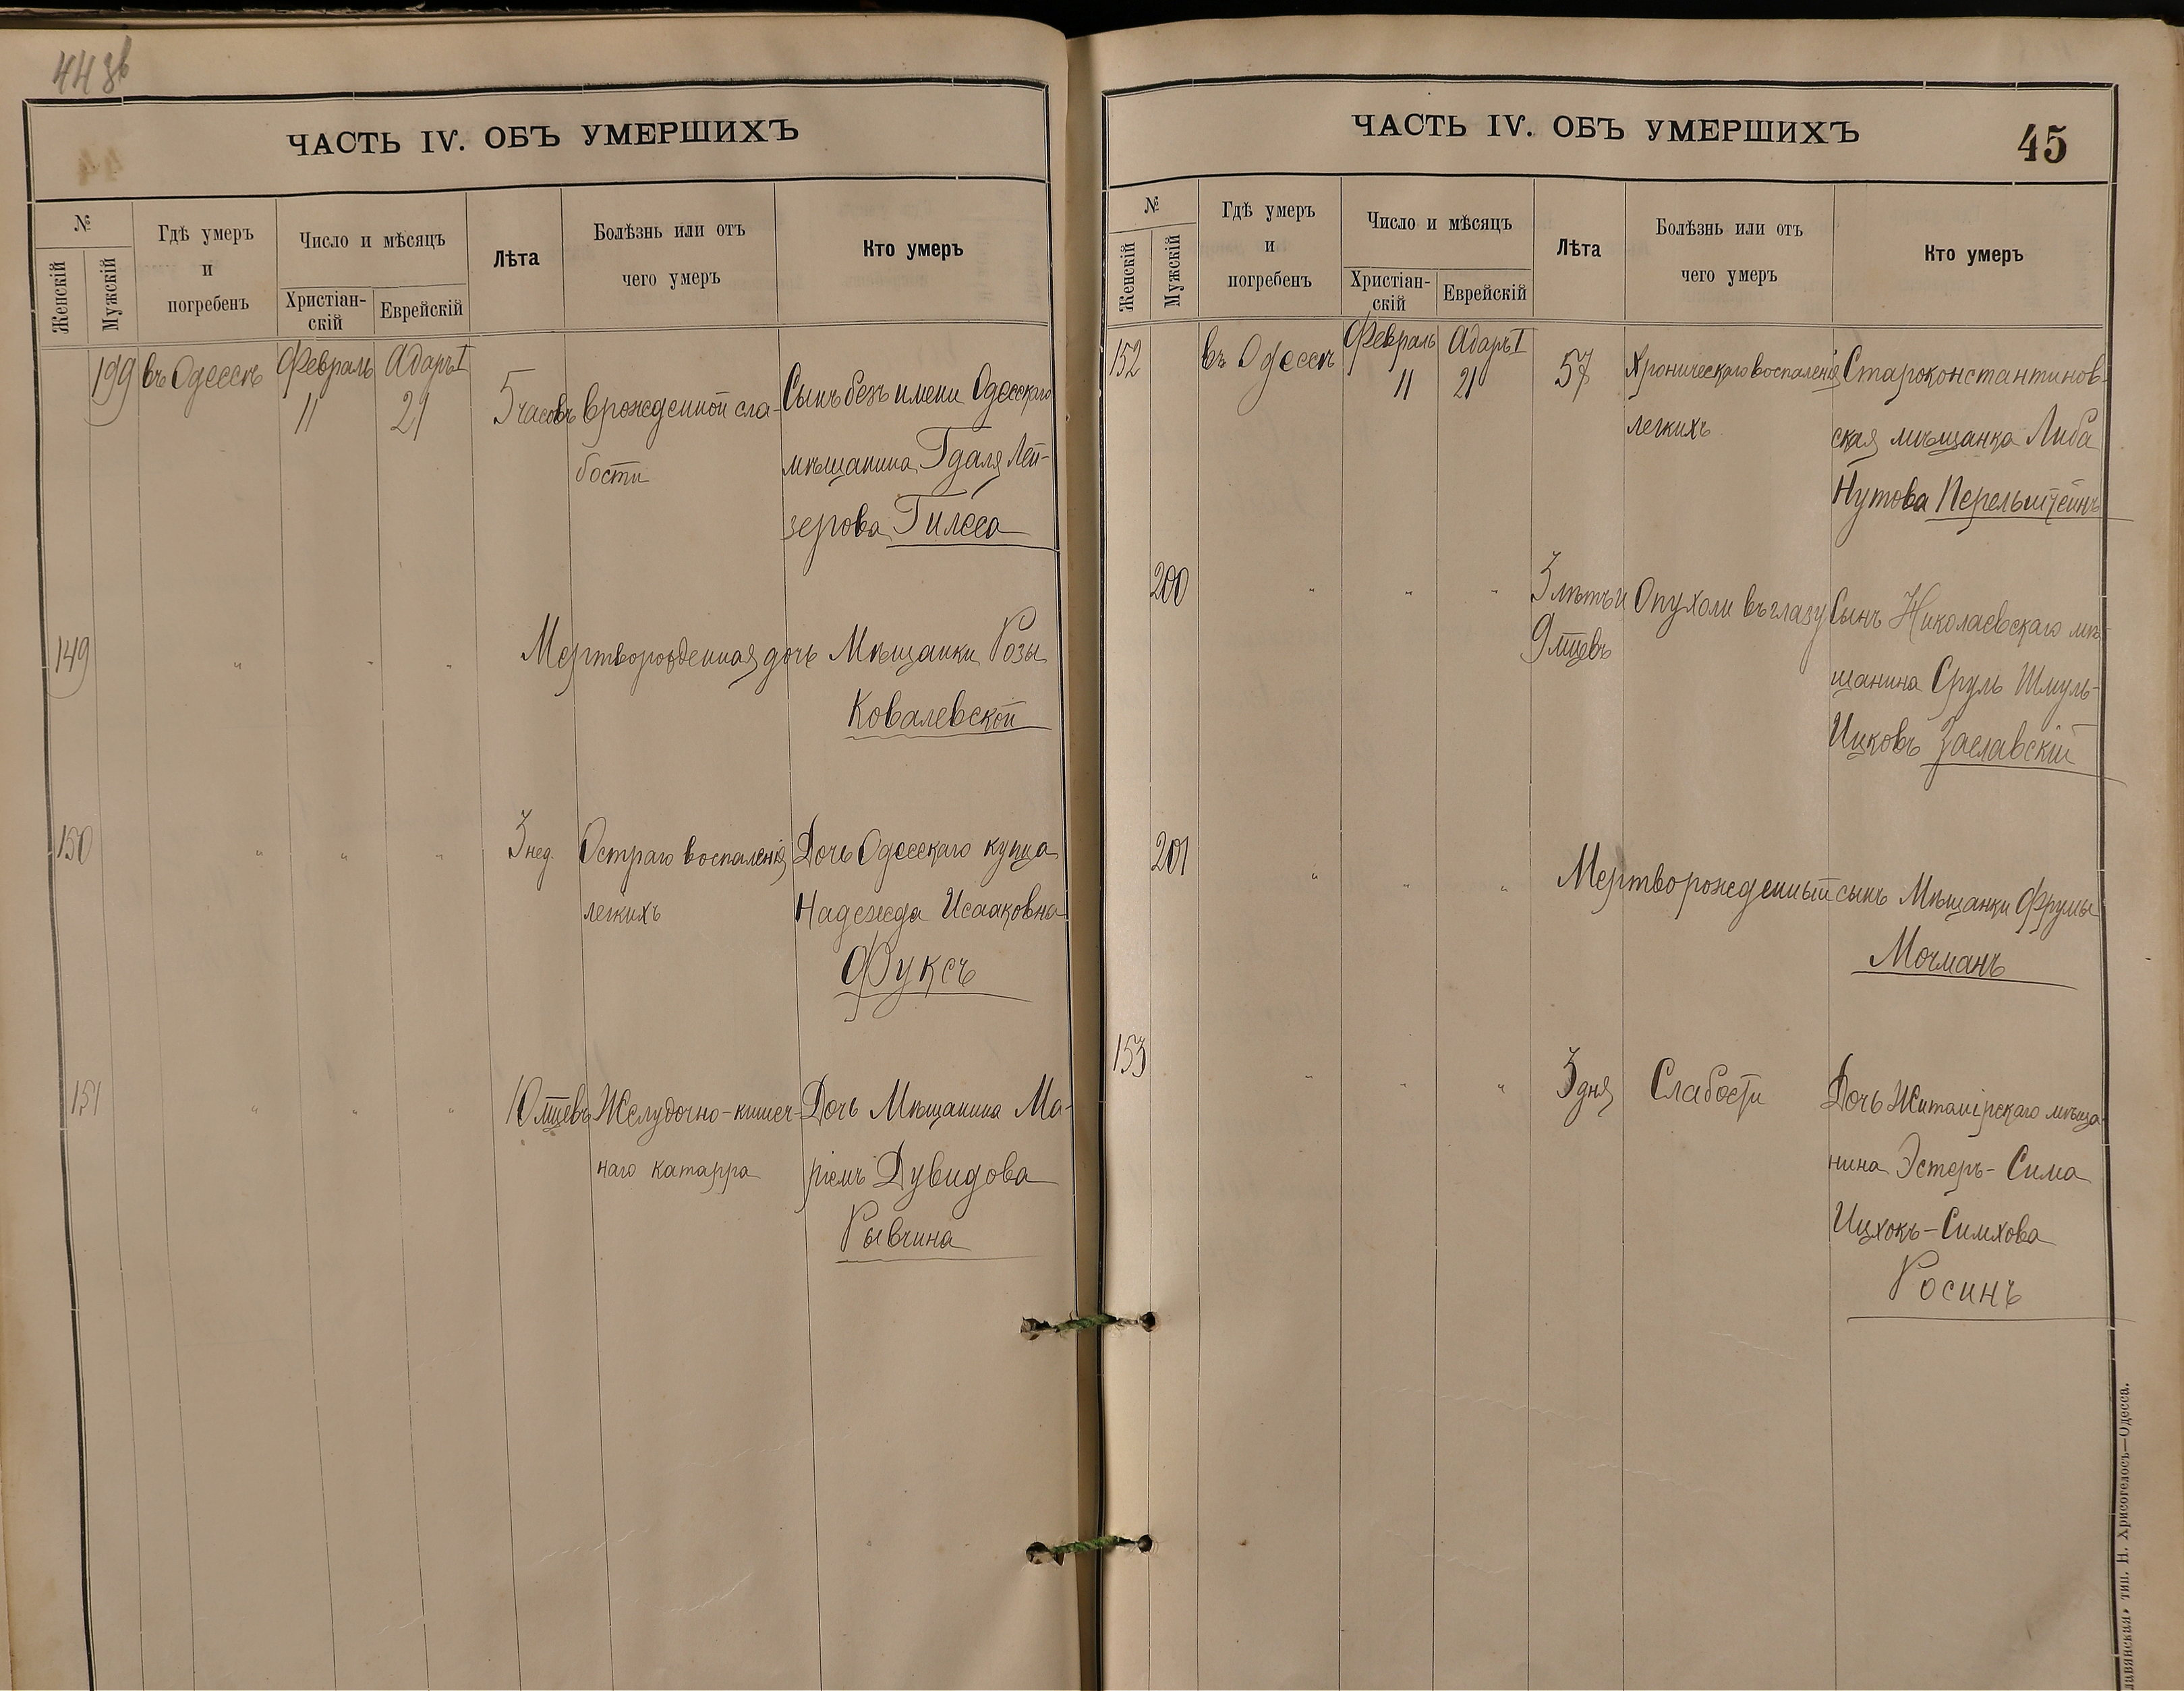 44 зв
ЧАСТЬ IV. ОБЪ УМЕРШИХЪ
№
Женскій
Мужскій
Гдѣ умеръ
и
погребенъ
Число и мѣсяцъ
Христіан-
скій
Еврейскій
Лѣта
Болѣзнь или отъ
чего умеръ
Кто умеръ
199 въ Одессѣ Февраль 11 Адаръ I 21 5 часовъ врожденной сла- Сынъ безъ имени Одесскаго
бости мѣщанина Гдаля Лей-
зерова Гилеса
149 " " " Мертворожденная дочь Мѣщанки Розы
Ковалевской
150 " " " 3 нед. Остраго воспаленія Дочь Одесскаго купца
легкихъ Надежда Исааковна
Фуксъ
151 " " " 10 мцевъ Желудочно-кишеч- Дочь Мѣщанина Ма-
наго катарра ріемъ Дувидова
Рывчина
ЧАСТЬ IV. ОБЪ УМЕРШИХЪ
45
№
Женскій
Мужскій
Гдѣ умеръ
и
погребенъ
Число и мѣсяцъ
Христіан-
скій
Еврейскій
Лѣта
Болѣзнь или отъ
чего умеръ
Кто умеръ
152 въ Одессѣ Февраль 11 Адаръ I 21 57 Хроническаго воспаленія Староконстантинов-
легкихъ ская мѣщанка Либа
Нутова Перельштейнъ
200 " " " 3 лѣтъ и Опухоли въ глазу Сынъ Николаевскаго мѣ-
9 мцевъ щанина Сруль Шмуль-
Ицковъ Заславскій
201 " " " Мертворожденный сынъ Мѣщанки Фрумы
Мочманъ
153 " " " 3 дня Слабости Дочь Житомірскаго мѣща-
нина Эстеръ-Сима
Ицхокъ-Симхова
Росинъ
тип. Н. Хрисогелосъ—Одесса.